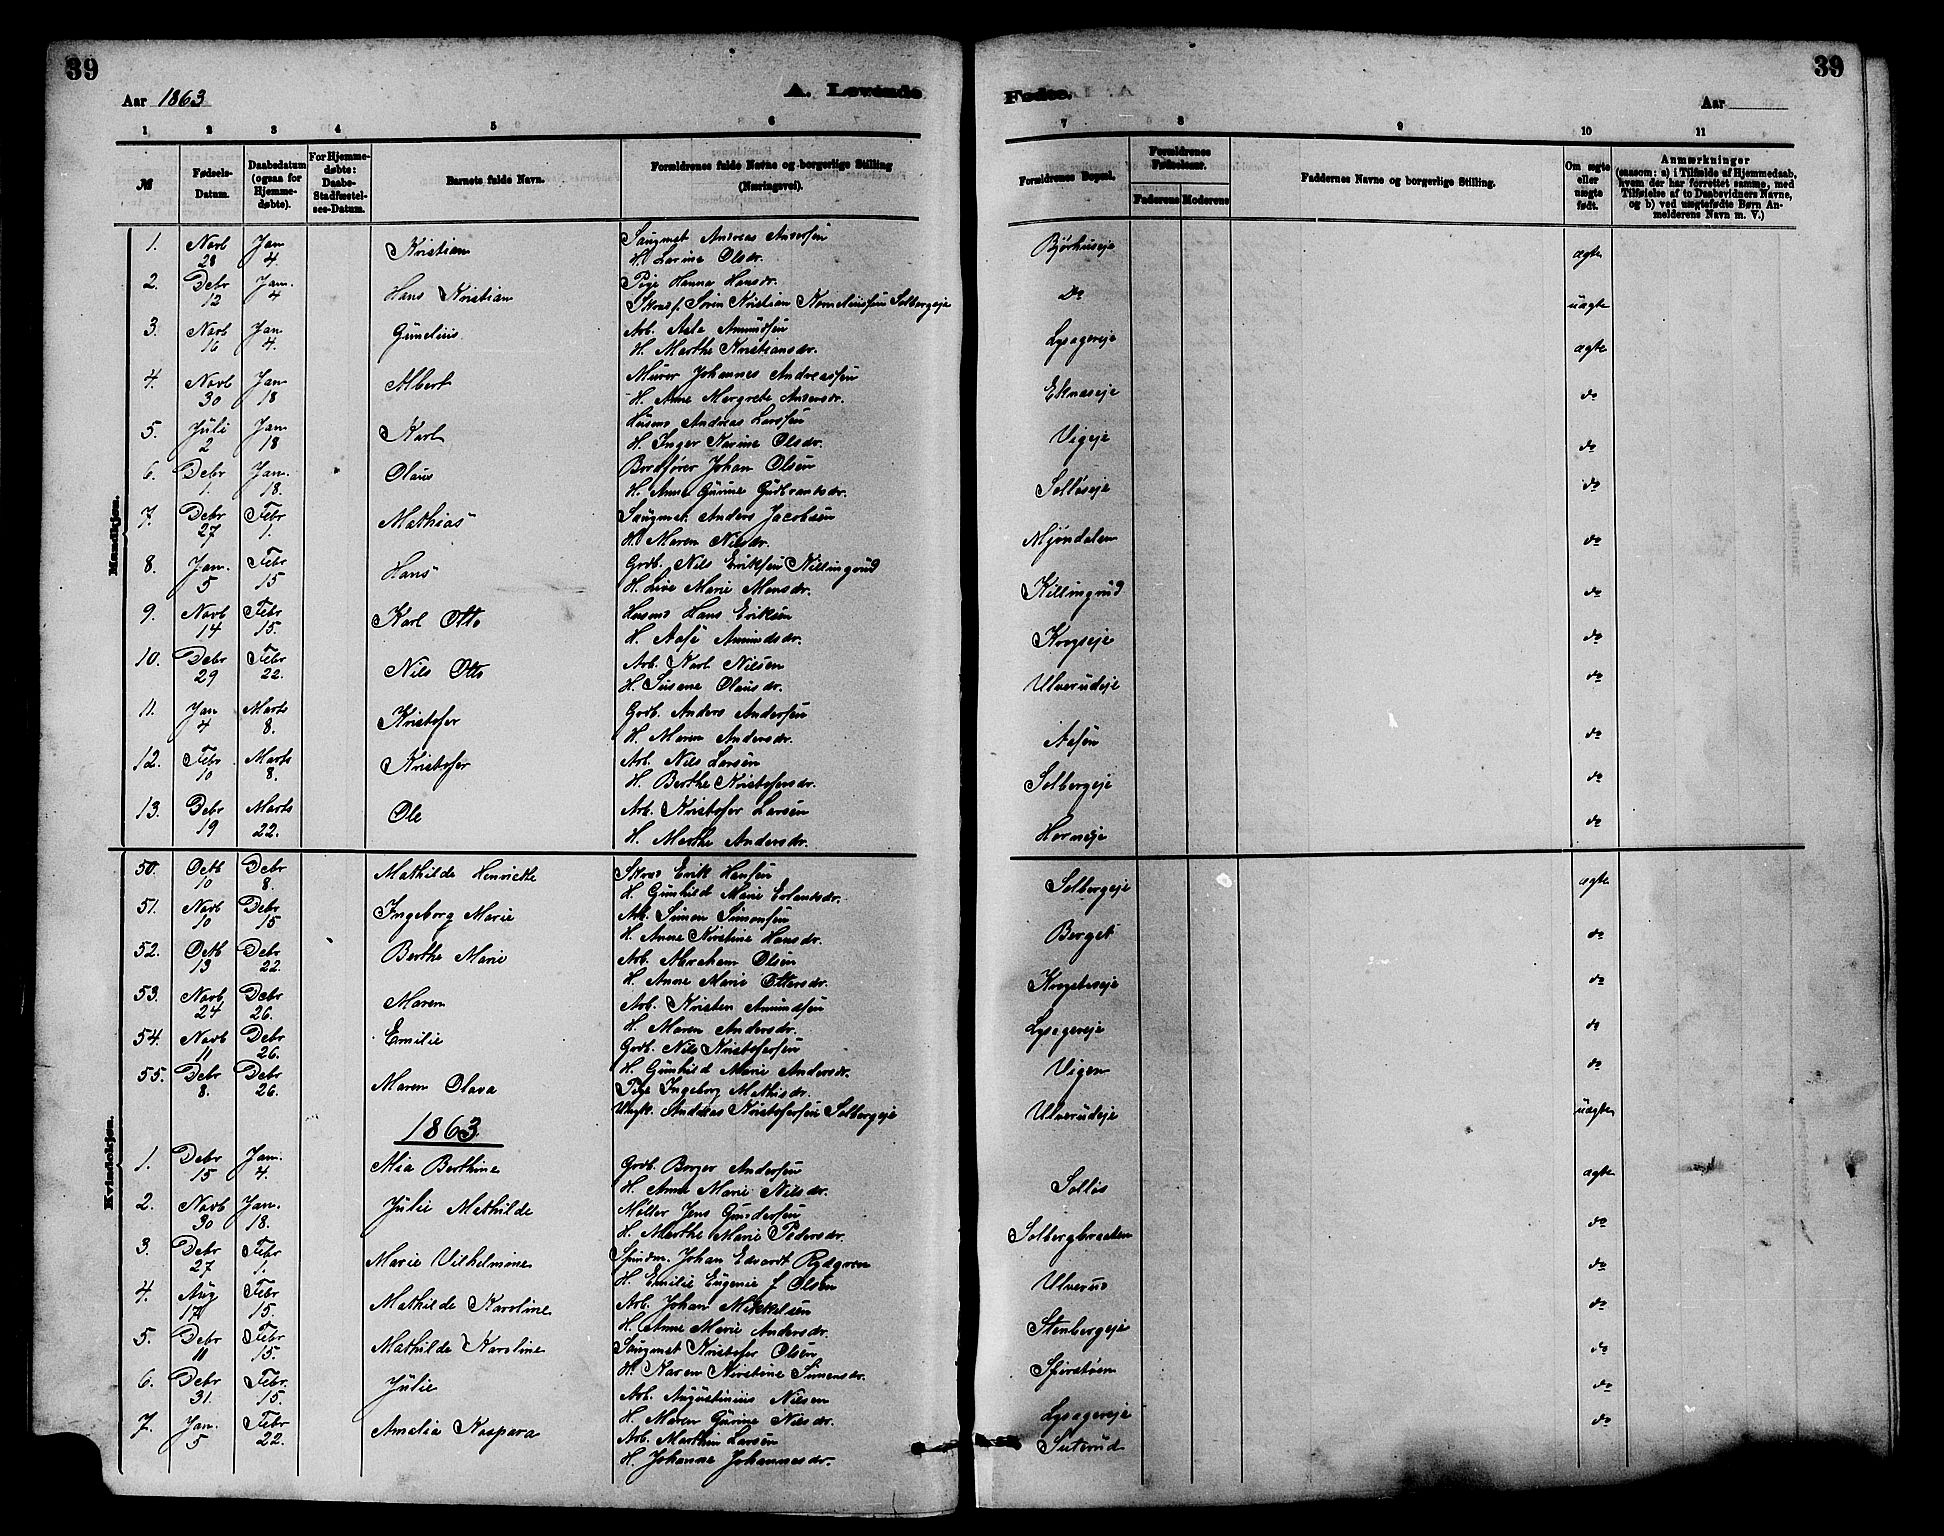 39
39
Aar 1863
A. Levende
Fødte.
Aar
1 2 3 4 5 6
7 8 9 10 11
№
Fødsels-Datum.
Daabedatum (ogsaa for Hjemmedøbte).
For Hjemmedøbte: Daabs-Stadfæstelses-Datum.
Barnets fulde Navn.
Forældrenes fulde Navne og borgerlige Stilling (Næringsvei).
Forældrenes Bopæl.
Forældrenes Fødselsaar.
Faderens Moderens
Faddernes Navne og borgerlige Stilling.
Om ægte eller uægte født.
Anmærkninger (saasom: a) i Tilfælde af Hjemmedaab, hvem der har forrettet samme, med Tilføielse af to Daabsvidners Navne, og b) ved uægtefødte Børn Anmelderens Navn m. V.)
Mandkjøn.
1. Novb 28 Jan 4. Kristian Saugmst Andreas Andersen Bjørhuseje ægte
H. Larine Olsdr.
2. Debr 12 Jan. 4 Hans Kristian Pige Hanna Hansdr. Do uægte
Skrædf. Søren Kristian Korneliussen Solbergeje
3. Novb 16 Jan 4. Gunelius Arb. Asle Amundsen Lysagereje ægte
H. Marthe Kristiansdr.
4. Novb 30 Jan 18 Albert Murer Johannes Andreassen Eknæseje do
H. Anne Margrete Andersdr.
5. Juli 2 Jan 18 Karl Husmd Andreas Larssen Vigeje do
H. Inger Karine Olsdr.
6. Debr 1. Jan. 18. Olaus Bordfører Johan Olsen Solløseje do
H. Anne Gurine Gudbrandsdr.
7. Debr 27 Febr 1. Mathias Saugmst. Anders Jacobsen Mjøndalen do
H. Maren Nilsdr.
8. Jan. 5 Febr 15 Hans Grdb. Nils Eriksen Killingrud Killingrud do
H. Live Marie Monsdr.
9. Novb 14 Febr 15. Karl Otto Husmd Hans Eriksen Krogseje do
H. Aase Amundsdr.
10. Debr 29 Febr 22. Nils Otto Arb. Karl Nilsen Ulverudeje do
H. Susane Olausdr.
11. Jan 4 Marts 8. Kristofer Grdb. Anders Andersen Aasen do
H. Maren Andersdr.
12. Febr 10 Marts 8. Kristofer Arb. Nils Larsen Solbergeje do
H. Berthe Kristofersdr.
13. Debr 19 Marts 22. Ole Arb. Kristofer Larsen Horneje do
H. Marthe Andersdr.
Kvindekjøn.
50. Octb 10 Debr 8. Mathilde Henriette Skræd Erik Hansen Solbergeje ægte
H. Gunhild Marie Erlandsdr.
51. Novb 10 Debr 15 Ingeborg Marie Arb. Simon Simonsen Berget do
H. Anne Kirstine Hansdr.
52. Octb 13 Debr 22. Berthe Marie Arb. Abraham Olsen Krogebseje do
H. Anne Marie Ottersdr.
53. Novb 24 Debr 26. Maren Arb. Kristen Amundsen Lysagereje do
H. Maren Andersdr.
54. Novb 11 Debr 26. Emilie Grdb. Nils Kristofersen Vigen do
H. Gunhild Marie Andersdr.
55. Debr 8. Debr 26. Maren Olava Pige Ingeborg Mathisdr. Ulverudeje uægte
Ungk. Andreas Kristofersen Solbergeje
1863
1. Debr 15 Jan. 4. Mia Berthine Grdb. Borger Andersen Solløs ægte
H. Anne Marie Nilsdr.
2. Novb 30 Jan. 18. Julie Mathilde Møller Jens Gundersen Solbergbraaten do
H. Marthe Marie Pedersdr.
3. Debr 27 Febr 1. Marie Vilhelmine Spindm. Johan Edvardt Rydgren Ulverud do
H. Emilie Eugenie f Olsen
4. Aug 17 Febr 15. Mathilde Karoline Arb. Johan Mikkelsen Stenbergeje do
H. Anne Marie Andersdr.
5. Debr 11 Febr 15. Mathilde Karoline Saugmst Kristofer Olsen do
H. Karen Kirstine Simensdr.
6. Debr 31. Febr. 15. Julie Arb. Augustinius Nilsen Lysagereje do
H. Maren Gurine Nilsdr.
7. Jan. 5 Febr 22. Amelia Kaspara Arb. Marthin Larsen Suterud do
H. Johanne Johannesdr.